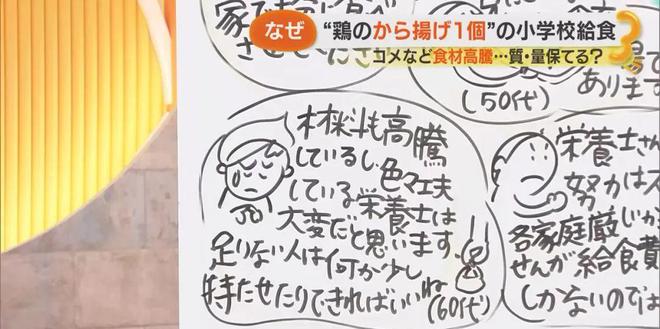 なぜ
“鶏のから揚げ1個”の小学校給食
コメなど食材高騰…質・量保てる？
あります
(50代)
材料も高騰
しているし色々工夫
している栄養士は
大変だと思います
足りない人は何か少し
持たせたりできればいいね
(60代)
栄養士さん
努力は
各家庭厳しいか
せんが給食費
しかないのでは